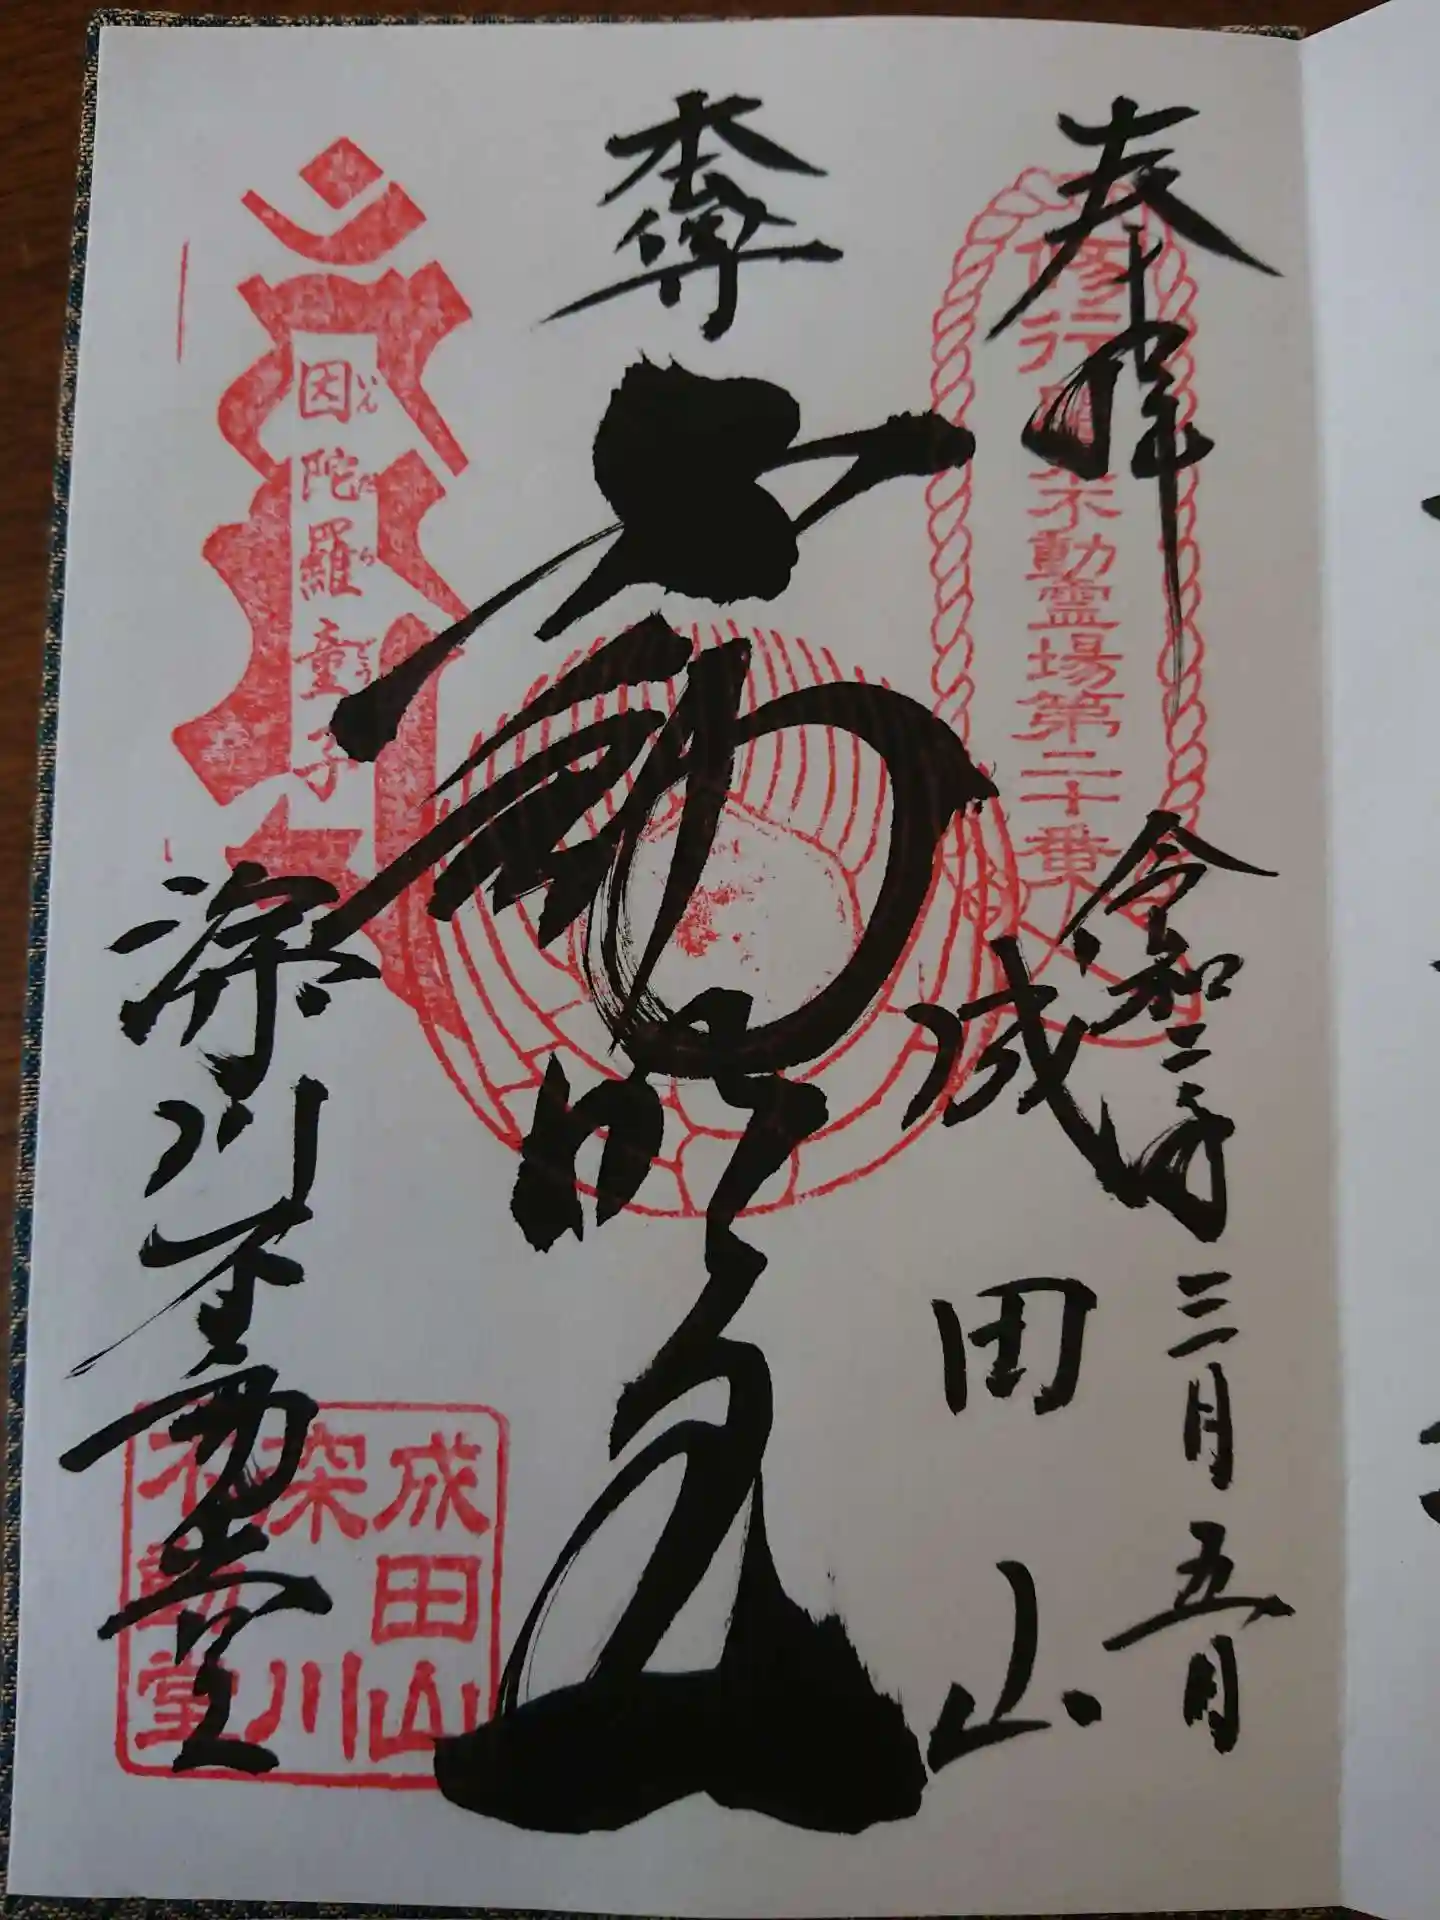 奉拝
令和二年三月五日
修行
不動霊場第二十番
成田山
本尊
不動明王
因陀羅童子
いんだらどう
深川不動堂
成田山
深川
不動堂